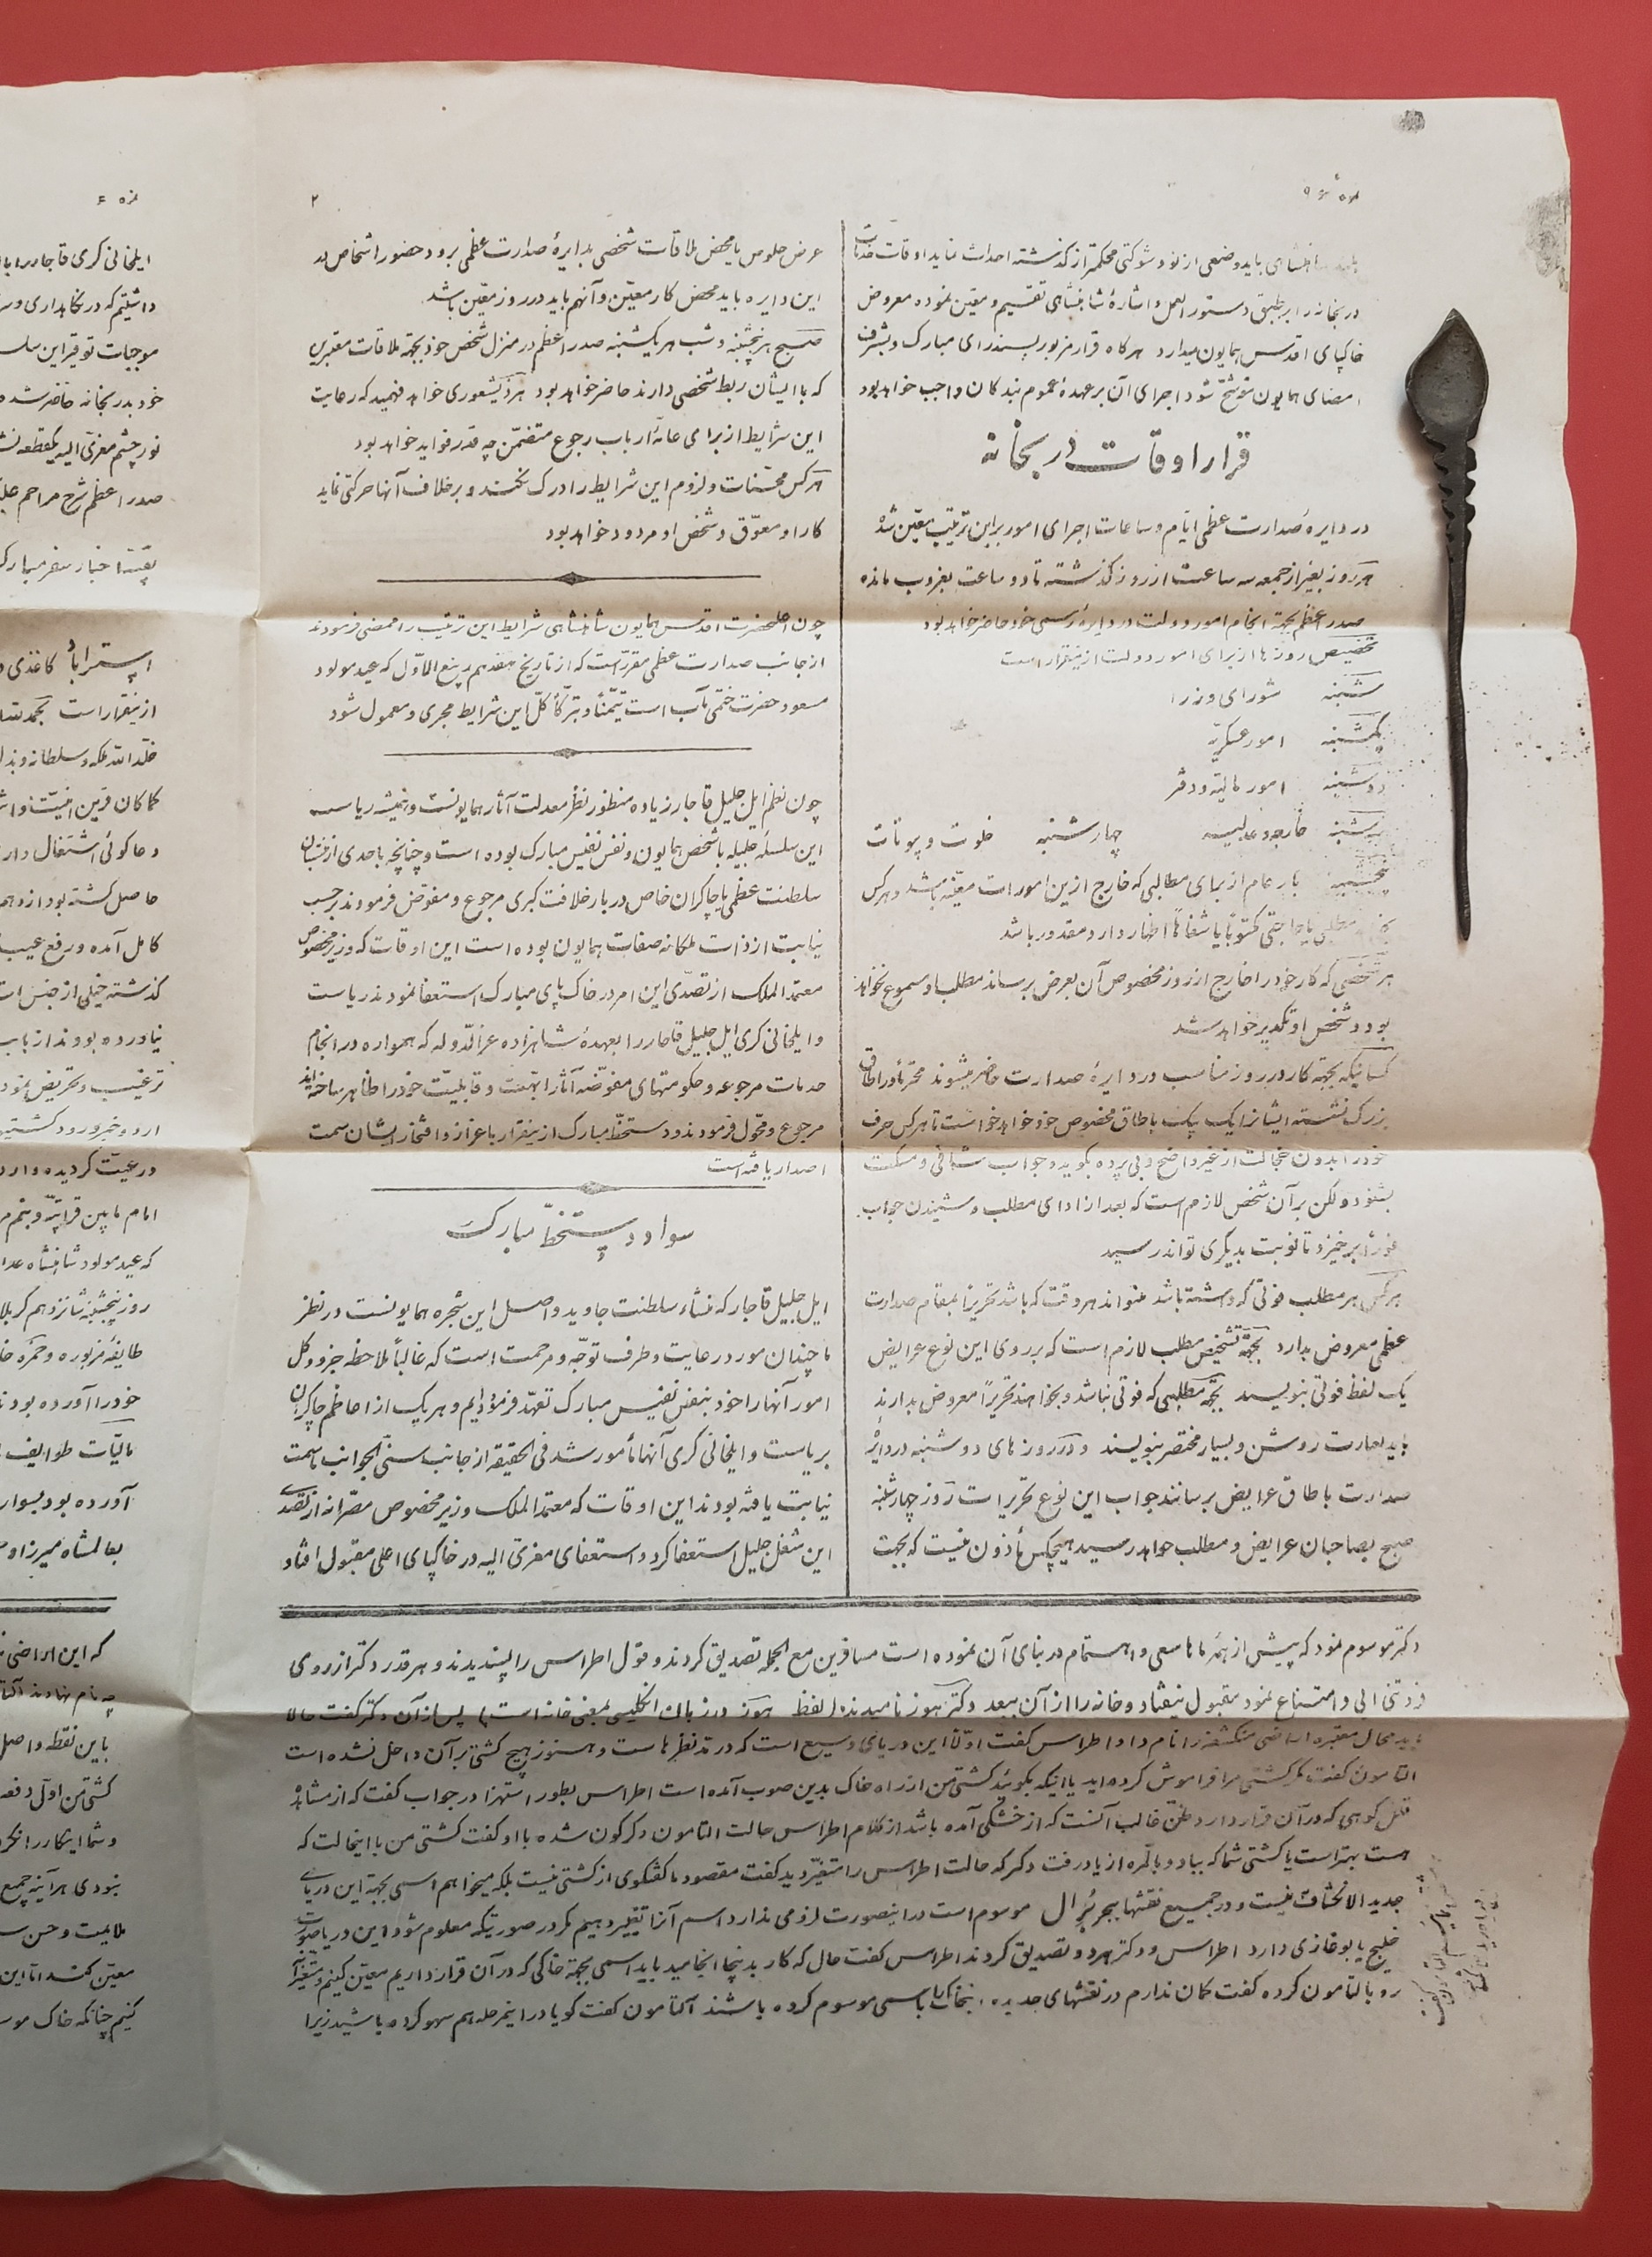 نمره ۶
۲
باید وضعی از نو و شوکتی محکمتر از گذشته احداث نماید اوقات خدمات
دربخانه را بر طبق دستور العمل و اشارهٔ شاهنشاهی تقسیم و معین نموده معروض
خاکپای اقدس همایون میدارد هر گاه قرار مزبور پسند رای مبارک و بشرف
امضای همایون موشح شود اجرای آن بر عهدهٔ عموم بندگان واجب خواهد بود
قرار اوقات دربخانه
در دایرهٔ صدارت عظمی ایام و ساعات اجرای امور بر این ترتیب معین شده
هر روز بغیر از جمعه سه ساعت از روز گذشته تا دو ساعت بغروب مانده
صدر اعظم بجهة انجام امور دولت در دایرهٔ رسمی خود حاضر خواهد بود
تخصیص روزها از برای امور دولت از اینقرار است
شنبه شورای وزرا
یکشنبه امور عسکریه
دوشنبه امور مالیه و دفتر
سه شنبه خارجه و عدلیه چهارشنبه خلوت و بیوتات
پنجشنبه بار عام از برای مطالبی که خارج ازین امورات معینه باشد و هر کس
مطلبی یا حاجتی مکتوباً یا شفاهاً اظهار دارد مقدور باشد
هر شخصی که کار خود را خارج از روز مخصوص آن بعرض برساند مطلب او مسموع نخواهد
بود و شخص او تکدیر خواهد شد
کسانیکه بجهة کار در روز مناسب در دایرهٔ صدارت حاضر میشوند محترماً در اطاق
بزرگ نشسته ایشانرا یک یک باطاق مخصوص خود خواهد خواست تا هر کس حرف
خود را بدون خجالت از غیر واضح و بی پرده بگوید و جواب شافی و مسکت
بشنود و لکن بر آن شخص لازم است که بعد از ادای مطلب و شنیدن جواب
فوراً برخیزد تا نوبت بدیگری تواند رسید
هر کس هر مطلب فوتی که داشته باشد میتواند هر وقت که باشد تحریراً بمقام صدارت
عظمی معروض بدارد بجهة تشخیص مطلب لازم است که بر روی این نوع عرایض
یک لفظ فوتی بنویسند بجهة مطلبی که فوتی نباشد و بخواهند تحریراً معروض بدارند
باید بعبارت روشن و بسیار مختصر بنویسند و در روزهای دوشنبه در دایرهٔ
صدارت باطاق عرایض برسانند جواب این نوع تحریرات روز چهارشنبه
صبح بصاحبان عرایض و مطلب خواهد رسید هیچکس مأذون نیست که بجهت
عرض خلوص یا محض ملاقات شخصی بدایرهٔ صدارت عظمی برود حضور اشخاص در
این دایره باید محض کار معین و آنهم باید در روز معین باشد
صبح هر پنجشنبه و شب هر یکشنبه صدر اعظم در منزل شخص خود بجهة ملاقات معتبرین
که با ایشان ربط شخصی دارند حاضر خواهد بود هر ذیشعوری خواهد فهمید که رعایت
این شرایط از برای عامهٔ ارباب رجوع متضمن چه قدر فواید خواهد بود
هر کس محسنات و لزوم این شرایط را درک نکند و بر خلاف آنها حرکتی نماید
کار او معوق و شخص او مردود خواهد بود
چون اعلیحضرت اقدس همایون شاهنشاهی شرایط این ترتیب را ممضی فرمودند
از جانب صدارت عظمی مقرر است که از تاریخ هفدهم ربیع الاول که عید مولود
مسعود حضرت ختمی مآب است تیمناً و تبرکاً کل این شرایط مجری و معمول شود
چون نظم ایل جلیل قاجار زیاده منظور نظر معدلت آثار همایونست و همیشه ریاست
این سلسله جلیله با شخص همایون و نفس نفیس مبارک بوده است و چنانچه باحدی از منتسبان
سلطنت عظمی یا چاکران خاص دربار خلافت کبری مرجوع و مفوض فرمودند بر حسب
نیابت از ذات ملکانه صفات همایون بوده است این اوقات که وزیر مخصوص
معتمد الملک از تصدی این امر در خاک پای مبارک استعفا نمودند ریاست
و ایلخانی کری ایل جلیل قاجار را بعهدهٔ شاهزاده عز الدوله که همواره در انجام
خدمات مرجوعه و حکومتهای مفوضه آثار ابهت و قابلیت خود را ظاهر ساخته اند
مرجوع و محول فرمودند و دستخط مبارک از اینقرار باعزاز و افتخار ایشان سمت
اصدار یافته است
سواد دستخط مبارک
ایل جلیل قاجار که منشاء سلطنت جاوید و اصل این شجره همایونست در نظر
ما چندان مورد رعایت و طرف توجه و مرحمت است که غالباً ملاحظه جزو و کل
امور آنها را خود بنفس نفیس مبارک تعهد فرموده ایم و هر یک از اعاظم چاکران
بریاست و ایلخانی کری آنها مأمور شد فی الحقیقه از جانب سنی الجوانب ما سمت
نیابت یافته بودند این اوقات که معتمد الملک وزیر مخصوص مصرانه از تصدی
این شغل جلیل استعفا کرد و استعفای معزی الیه در خاکپای اعلی مقبول افتاد
دکتر موسوم نمود که پیش از همهٔ ماها سعی و اهتمام در بنای آن نموده است مسافرین مع الجمله تصدیق کردند و قول اطراس را پسندیدند و هر قدر دکتر از روی
فروتنی ابا و امتناع نمود مقبول نیفتاد و خانه را از آن ببعد دکتر هوز نامیدند (لفظ هوز در زبان انگلیسی بمعنی خانه است) پس از آن دکتر گفت حالا
باید محال معتبره اراضی منکشفه را نام داد اطراس گفت اولاً این دریای وسیع است که در مد نظر ماست و هنوز هیچ کشتی بر آن داخل نشده است
التامون گفت مگر کشتی مرا فراموش کرده اید یا اینکه بگوئید کشتی من از راه خاک بدین صوب آمده است اطراس بطور استهزا در جواب گفت که از مشاهدهٔ
قلل کوهی که در آن قرار دارد ظن غالب آنست که از خشکی آمده باشد از کلام اطراس حالت التامون دگرگون شده با او گفت کشتی من با اینحالت که
هست بهتر است یا کشتی شما که بباد و بالمره از یاد رفت دکتر که حالت اطراس را متغیر دید گفت مقصود ما گفتگوی از کشتی نیست بلکه میخواهم اسمی بجهة این دریای
جدید الانکشاف نیست و در جمیع نقشها ببحر بُرال موسوم است در اینصورت لزومی ندارد اسم آنرا تغییر دهیم مگر در صورتیکه معلوم شود این دریا صورت
خلیج یا بوغازی دارد اطراس و دکتر هر دو تصدیق کردند اطراس گفت حال که کار بدینجا انجامید باید اسمی بجهة خاکی که در آن قرار داریم معین کنیم
رو بالتامون کرده گفت گمان ندارم در نقشهای جدیده اینخاک را باسمی موسوم کرده باشند التامون گفت گویا در اینمرحله هم سهو کرده باشید زیرا
نمره ۶
ایلخانی کری قاجار را با
داشتیم که در نگاهداری و
موجبات توقیر این سلسله
خود بدربخانه حاضر شد
نور چشم معزی الیه یکقطعه نشان
صدر اعظم شرح مراحم علیه
بقیهٔ اخبار سفر مبارک
استرآباد کاغذی
از اینقرار است بحمد الله
خلد الله ملکه و سلطانه
کماکان قرین امنیت و
دعا گوئی اشتغال دارند
حاصل گشته بود از دهم
کامل آمده و رفع عیب
گذشته خیلی از جنس
نیاورده بودند از باب
ترغیب و تحریض نمود
درعیت گردیده وارد
که عید مولود شاهنشاه
روز پنجشنبه شانزدهم
طایفهٔ مزبوره و
خود را آورده بودند
مالیات طوایف
آورده بود بسوار
بعالمشاه میرزا
که این اراضی
چه نام نهادند
باین نقطه واصل
کشتی من اول دفعه
و شما اینکار را
نبودی هر آینه جمیع
ملایمت و حسن
معین کنند اما این
کنیم چنانکه خاک